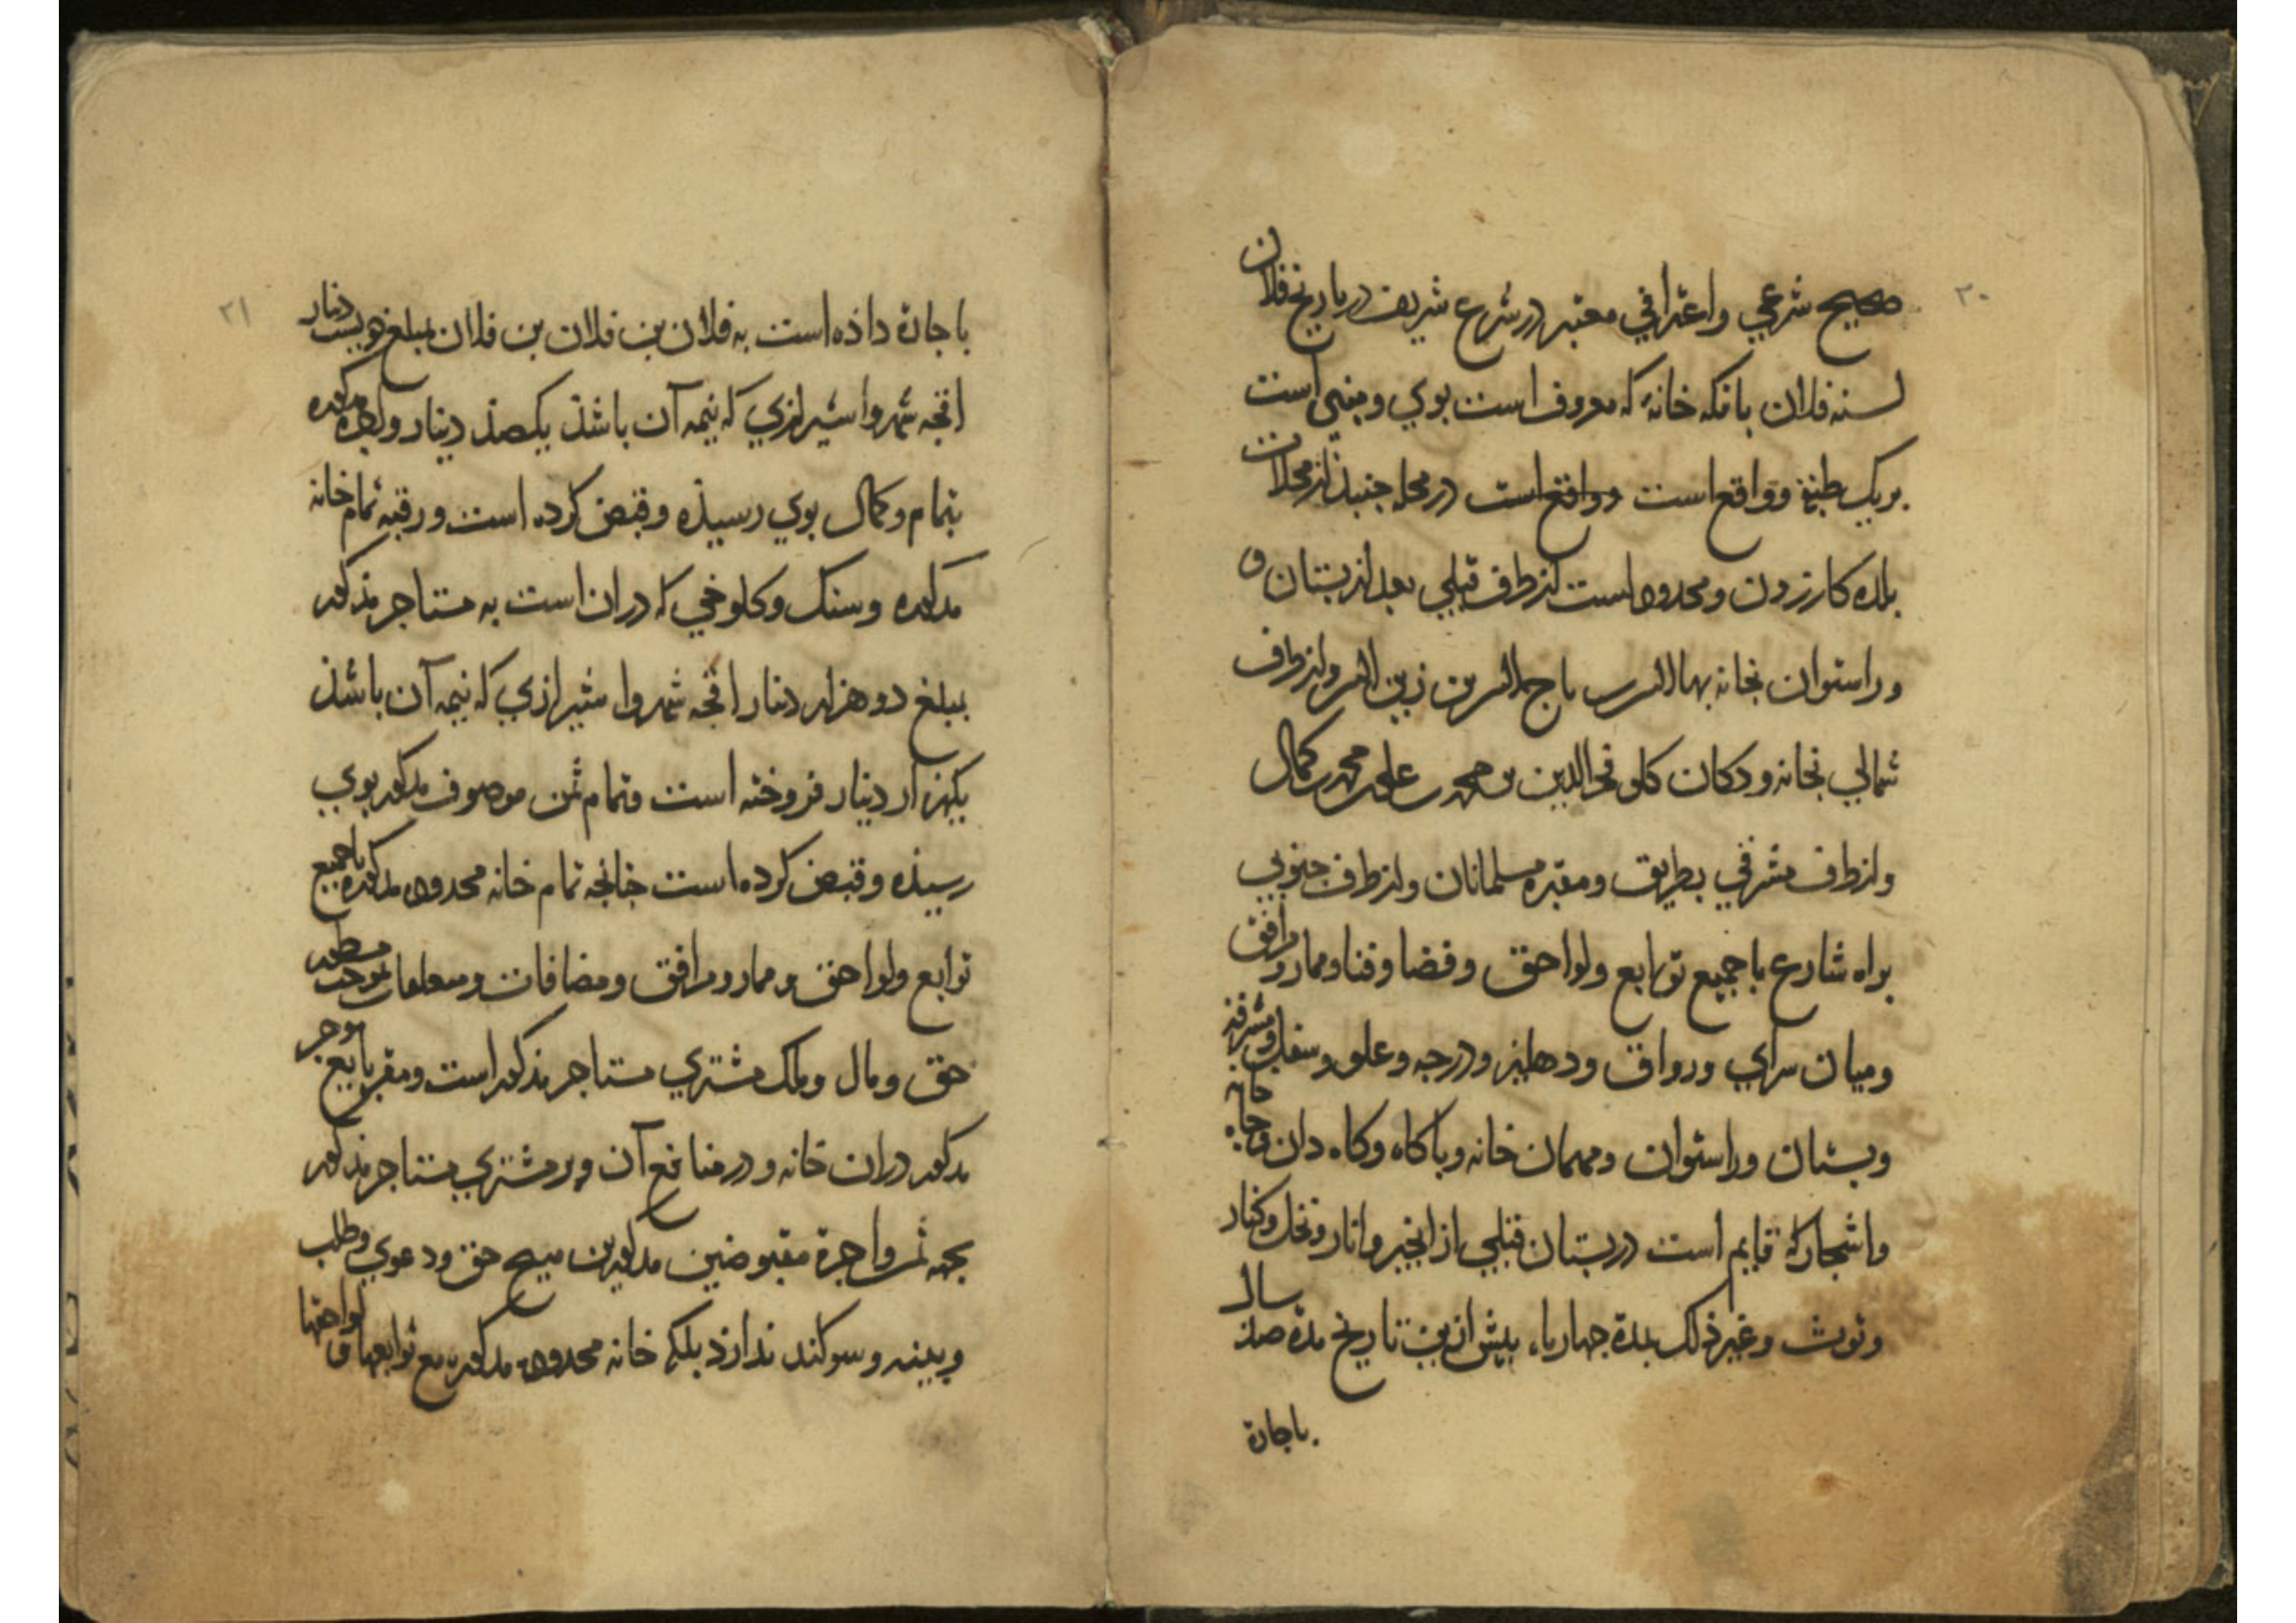 ٢٠
صحیح شرعي واعترافي معتبر در شرع شریف در تاریخ فلان
لسنه فلان بانکه خانهٔ که معروف است بوي ومبني است
بریک طبقه وواقع است وواقع است در محله جنبذ از محلات
بلده کازرون ومحدوده است از طرف قبلي بعد از بستان و
وراستوان بخانه بها الدین حاج جمال الدین بن زین الدین واز طرف
شمالي بخانه ودکان کلو فخرالدین بن محمد بن علي بن محمد بن کمال
واز طرف مشرقي بطریق ومقبره مسلمانان واز طرف جنوبي
براه شارع باجمیع توابع ولواحق وفضا وفنا وممار ومرافق
ومیان سراي ورواق ودهلیز ودرجه وعلو وسفل ومشرفه
وبستان وراستوان ومهمان خانه وباکاه وکاه دان وچاه خانه
واشجار که قایم است در بستان قبلي از انجیر وانار ونخل وکنار
وتوث وغیر ذلک بمدة چهار ماه پیش ازین تاریخ مدة صذ سال
باجارة
٢١
باجارة داذه است به فلان بن فلان بن فلان بمبلغ دویست دینار
اقجه شهروا شیرازي که نیمه آن باشذ یکصذ دینار واجره مذکوره
بتمام وکمال بوي رسیذه وقبض کرده است ورقبه تمام خانه
مذکوره وسنک وکلوخي که دران است به مستاجر مذکور
بمبلغ دو هزار دینار اقجه شهروا شیرازي که نیمه آن باشذ
یکهزار دینار فروخته است وتمام ثمن موصوف مذکور بوي
رسیذه وقبض کرده است چنانچه تمام خانه محدوده مذکوره باجمیع
توابع ولواحق وممار ومرافق ومضافات ومعاملات بموجب مسطور
حق ومال وملک مشتري مستاجر مذکور است ومقر بایع موجر
مذکور دران خانه ودر منافع آن وبر مشتري مستاجر مذکور
بجهه ثمن واجرة مقبوضین مذکورین هیچ حق ودعوي وطلب
وبینه وسوکند نداژد بلکه خانه محدوده مذکوره مع توابعها و لواحقها